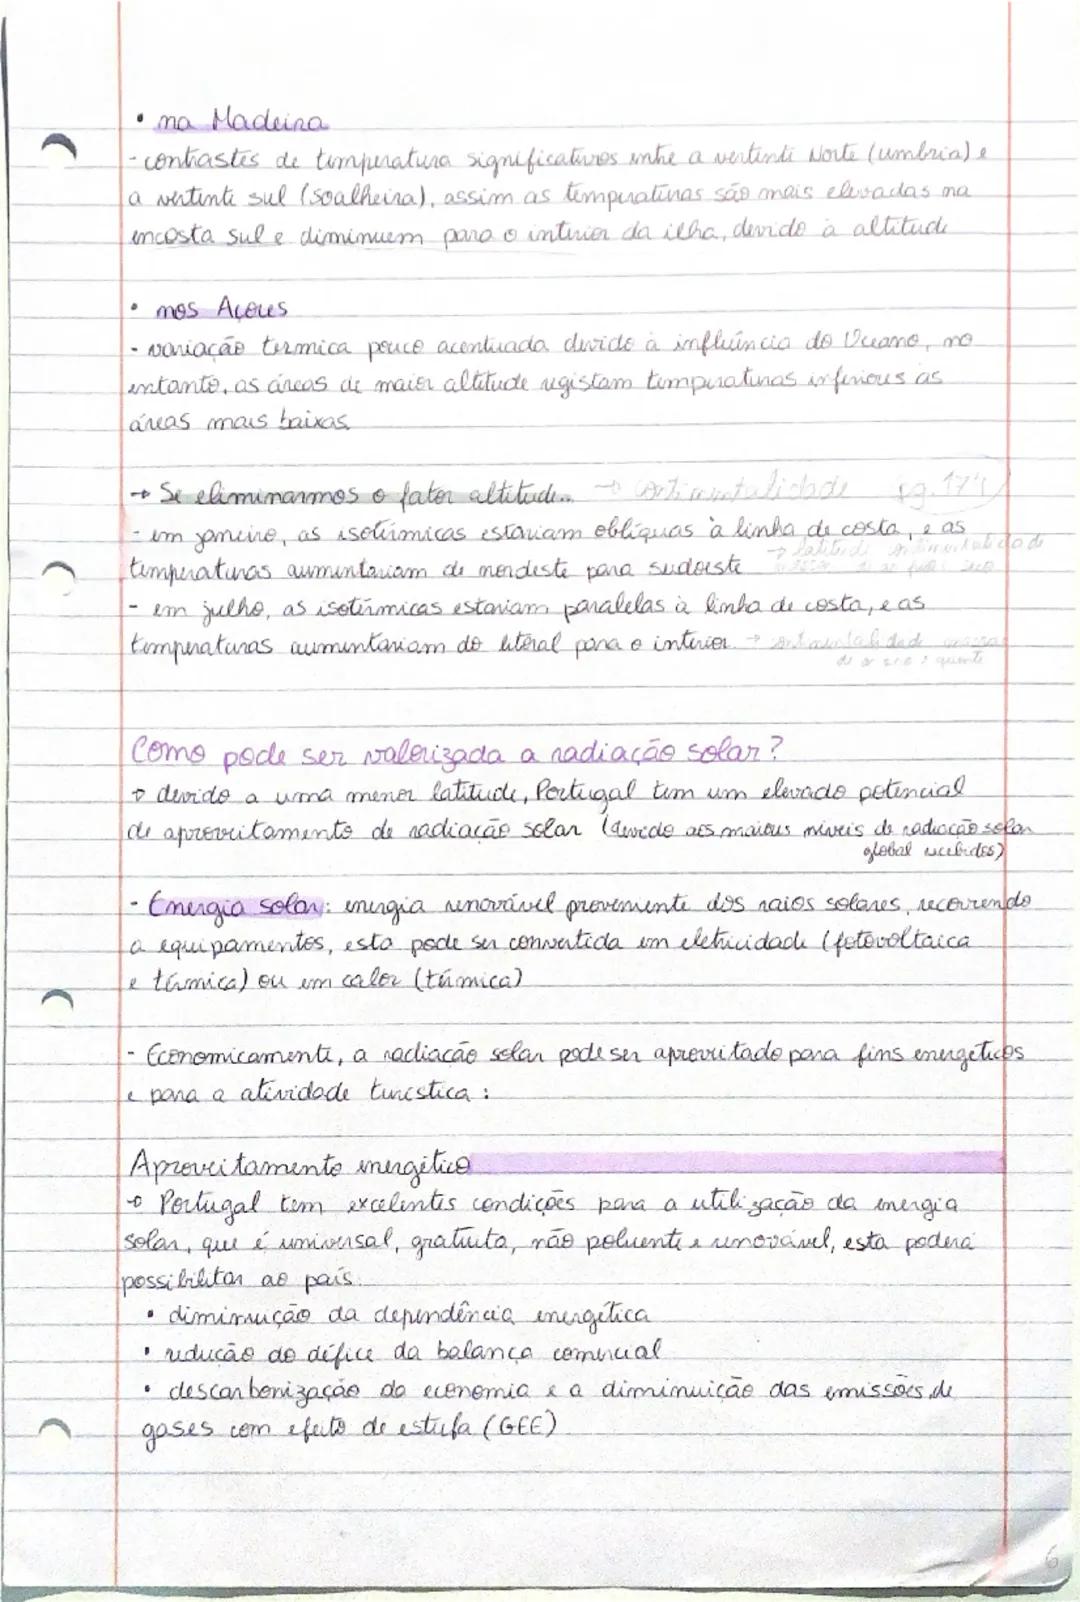 • na Madeira
- contrastes de temperatura significativos entre a vertente Norte (umbria) e
a vertente sul (soalheira), assim as temperaturas são mais elevadas na
encosta sul e diminuem para o interior da ilha, devido à altitude
• nos Açores
- variação térmica pouco acentuada devido à influência do Oceano, no
entanto, as áreas de maior altitude registam temperaturas inferiores às
áreas mais baixas
→ Se eliminarmos o fator altitude... → continentalidade pg. 174
- em janeiro, as isotérmicas estariam oblíquas à linha de costa, e as
→ latitude continentalidade
temperaturas aumentariam de nordeste para sudoeste
- em julho, as isotérmicas estariam paralelas à linha de costa, e as
temperaturas aumentariam do litoral para o interior → continentalidade massa
de ar seco e quente
Como pode ser valorizada a radiação solar?
→ devido a uma menor latitude, Portugal tem um elevado potencial
de aproveitamento de radiação solar (devido aos maiores níveis de radiação solar
global recebidos)
- Energia solar: energia renovável proveniente dos raios solares, recorrendo
a equipamentos, esta pode ser convertida em eletricidade (fotovoltaica
e térmica) ou em calor (térmica)
- Economicamente, a radiação solar pode ser aproveitado para fins energéticos
e para a atividade turística:
Aproveitamento energético
→ Portugal tem excelentes condições para a utilização da energia
solar, que é universal, gratuita, não poluente e renovável, esta poderá
possibilitar ao país:
• diminuição da dependência energética
• redução do défice da balança comercial
• descarbonização da economia e a diminuição das emissões de
gases com efeito de estufa (GEE)
6